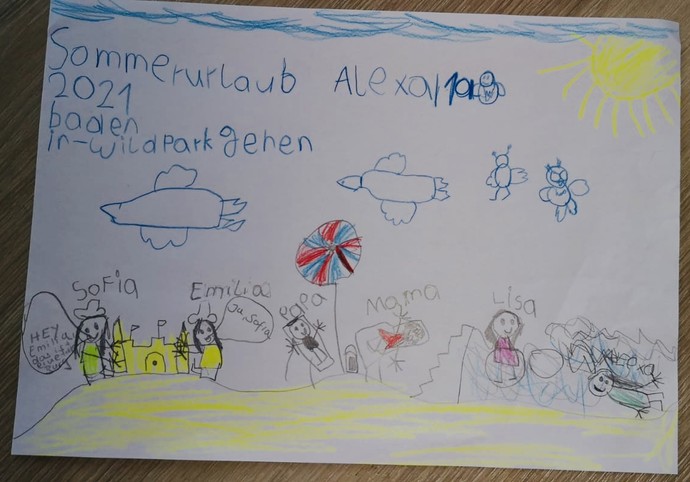 Sommerurlaub Alexa
2021
baden
in-wildpark gehen
Sofia
Emilia
Papa
Mama
Lisa
HEY
Emilia
Ja, Sofia